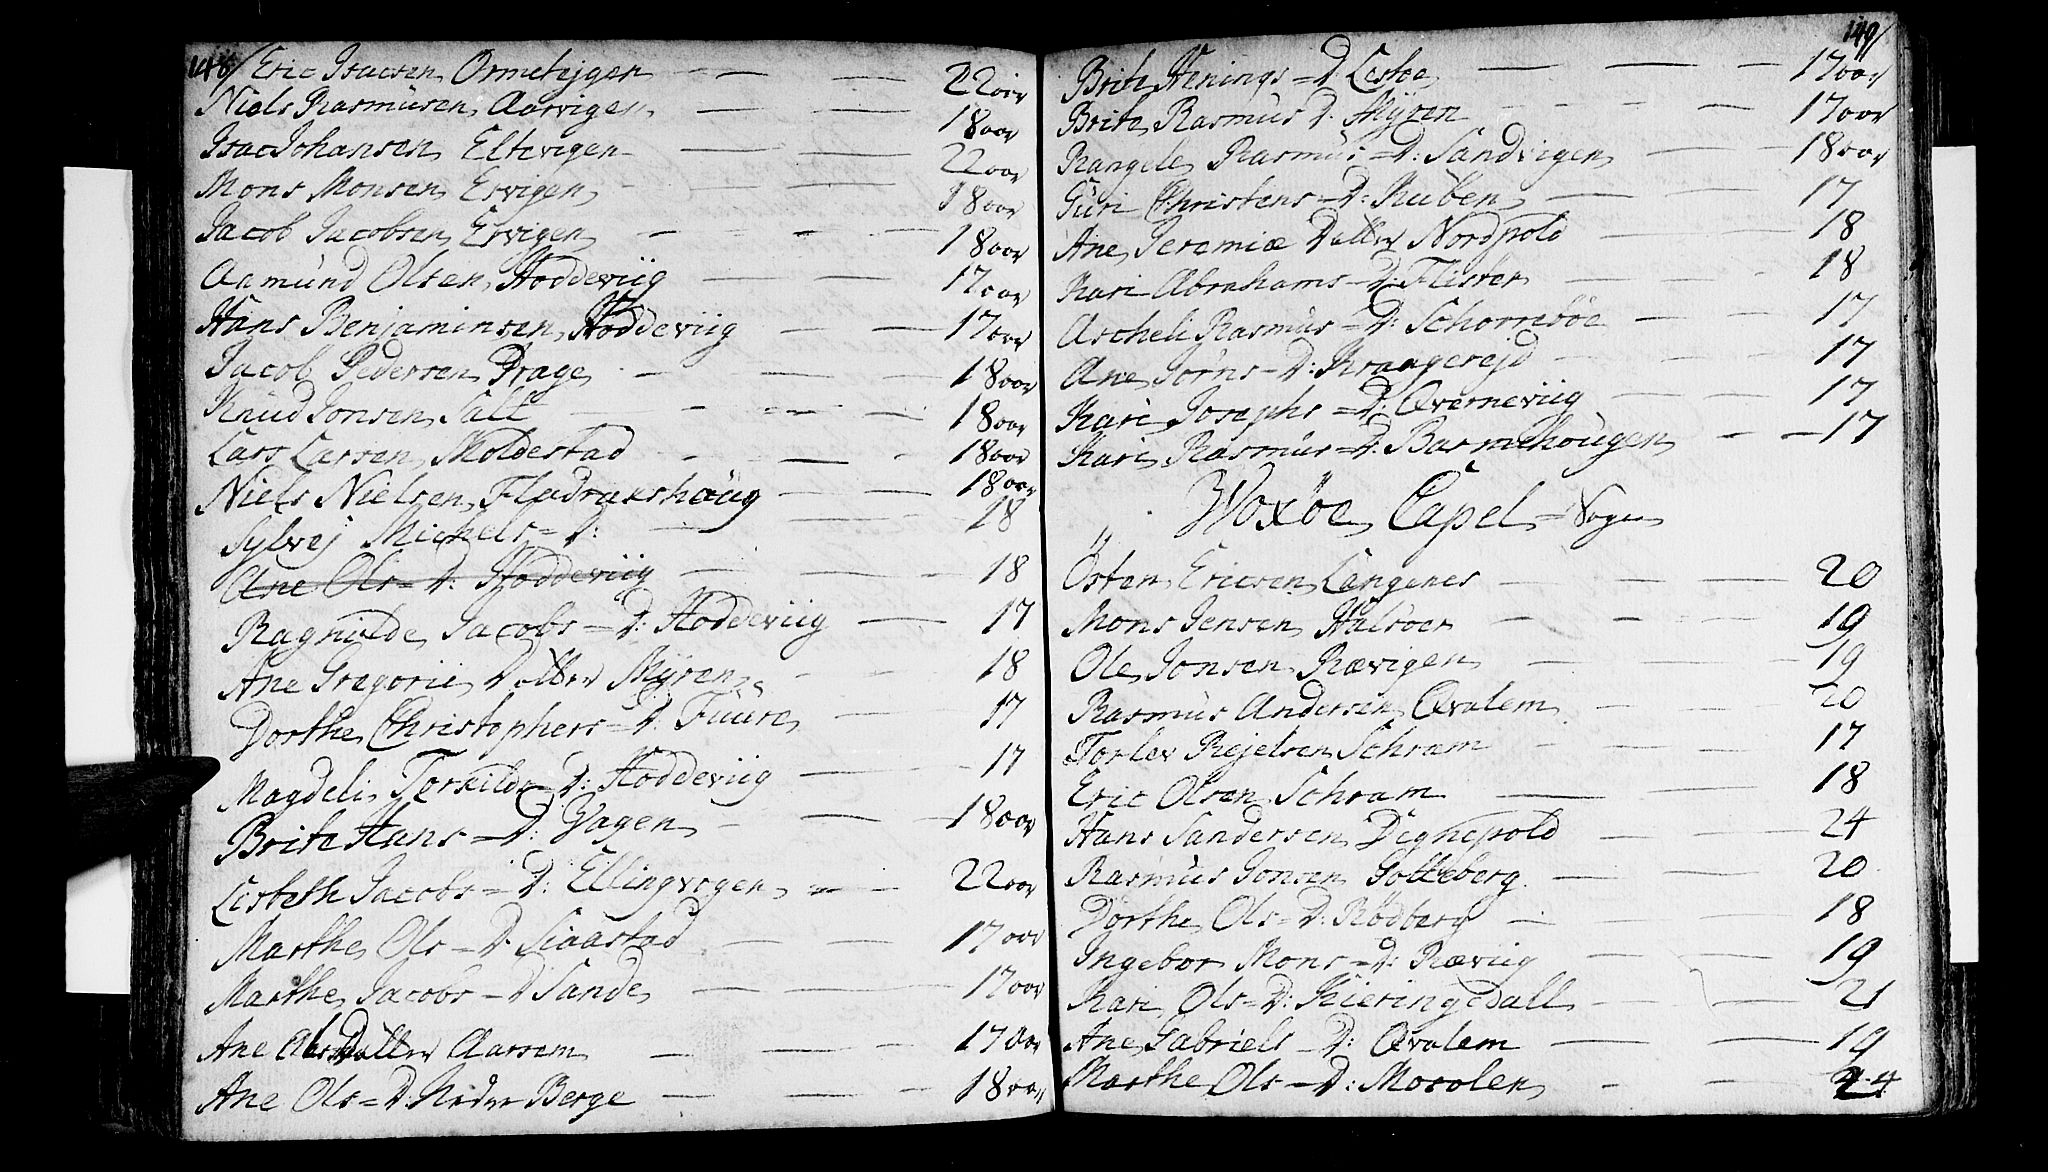 148/ Eric Isacsen Ormetejgen — — — 22 aar
Niels Rasmusen Aarvigen — — — 18 aar
Isac Johansen Eltevigen — — — 22 aar
Mons Monsen Ervigen — — — 18 aar
Jacob Jacobsen Ervigen — — — 18 aar
Aamund Olsen Hoddeviig — — — 17 aar
Hans Benjaminsen Hoddeviig — — — 17 aar
Jacob Pedersen Drage — — — 18 aar
Knud Jonsen Salt — — — 18 aar
Lars Larsen Moldestad — — — 18 aar
Niels Nielsen Fladraxshøug — — 18 aar
Sylvej Michels=D: — — 18
Ane Ols=D: Hoddeviig — — 18
Ragnilde Jacobs=D: Hoddeviig — 17
Ane Gregorii Datter Myren — 18
Dorthe Christophers=D: Fuure — 17
Magdeli Torkilds=D: Hoddeviig — — 17
Brite Hans=D: Vagen — — 18 aar
Lisbeth Jacobs=D: Ellingvogen — — 22 aar
Marthe Ols=D: Siaastad — — 17 aar
Marthe Jacobs=D Sande — — — 17 aar
Ane Datter Aarsem — — 17 aar
Ane Ols=D: Neder Berge — — — 18 aar
149/
Brite Henings=D: Lestoe — — — 17 aar
Brite Rasmus D. Myren — — — 17 aar
Rangele Rasmus=D: Sandvigen — — 18 aar
Guri Christens=D: Ruben — — — 17
Ane Jeremiæ Datter Nordpold — — 18
Kari Abrahams=D: Flister — — — 18
Ascheli Rasmus=D: Schorresøe — — 17
Ane Jørns=D: Kraagerejd — — 17
Kari Josephs=D: Qverneviig — — 17
Kari Rasmus=D: Barmehougen — — 17
Woxöe Capel=Sogn
Östen Ericsen Langenes — — — 20
Mons Jensen Halsöer — — — 19
Ole Jonsen Rævigen — — — 19
Rasmus Andersen Qvalem — — — 20
Torlev Rejelsen Schram — — — 17
Eric Olsen Schram — — — 18
Hans Sandersen Degnepold — — 24
Rasmus Jonsen Gotteberg — — 20
Dorthe Ols=D: Rødberg — — — 18
Ingebor Mons=D: Ræviig — — 19
Kari Ols=D: Kieringsdall — — 21
Ane Gabriels=D: Qvalem — — 19
Marthe Ols=D: Morolen — — — 24